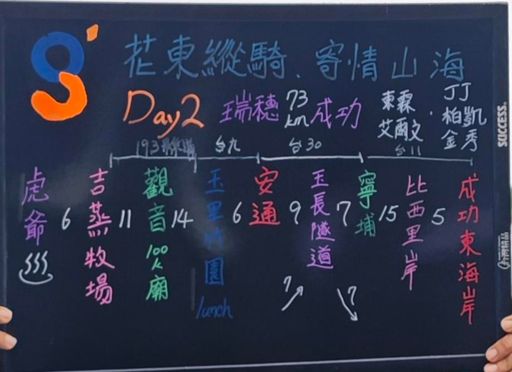 花東縱騎、寄情山海
Day2 瑞穗 73km 成功
東霖 艾爾文 JJ 柏凱 金秀
193 台九 台30 台11
虎爺 6 吉蒸牧場 11 觀音100k廟 14 玉里竹園 lunch 6 安通 9 玉長隧道 7 寧埔 15 比西里岸 5 成功東海岸
7 ↗ 7 ↘
SUCCESS